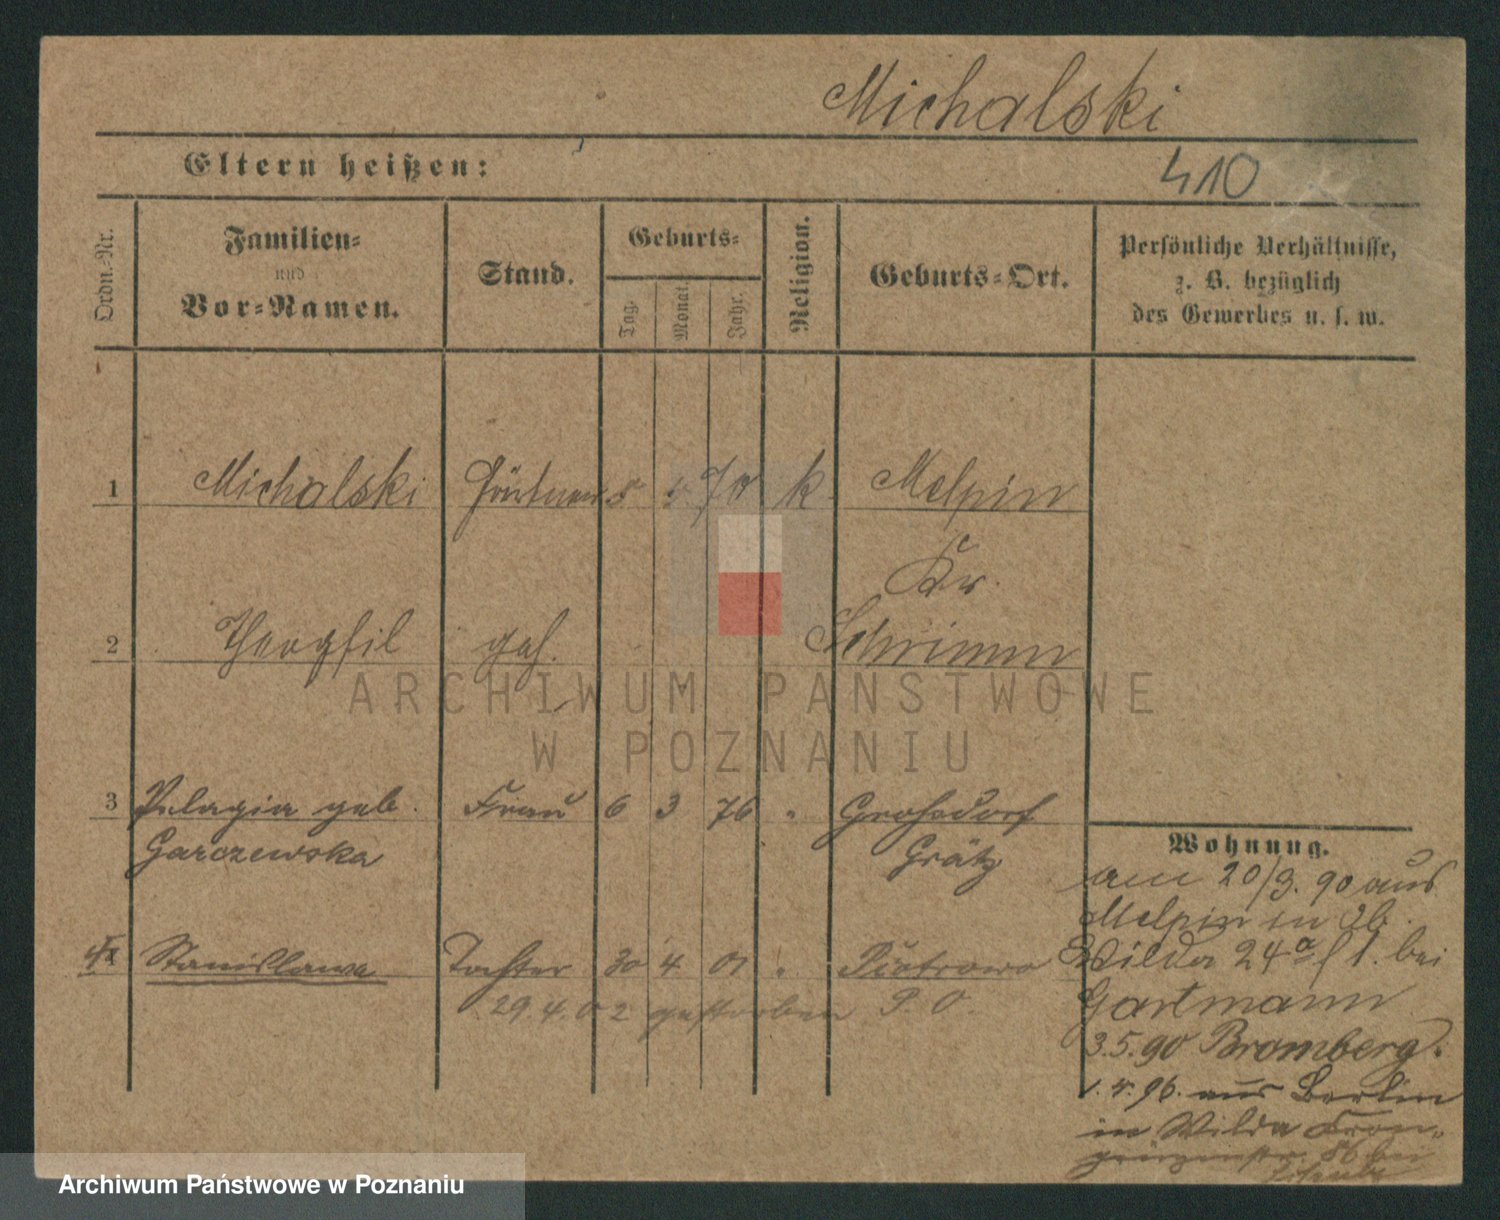 Michalski
Eltern heißen:
410
Ordn.-Nr.
Familien-
und
Vor-Namen.
Stand.
Geburts-
Tag.
Monat.
Jahr.
Religion.
Geburts-Ort.
Persönliche Verhältnisse,
z. B. bezüglich
des Gewerbes u. s. w.
1 Michalski Gärtner 70 k. Melpin
Kr.
2 Theophil Schrimm
ARCHIWUM PAŃSTWOWE
W POZNANIU
3 Pelagia geb. Frau 6 3 76 " Großdorf
Garczewska Grätz
Stanislawa Tochter 30 4 01 " Piotrowo
29.4.02 gestorben P. O.
Wohnung.
am 20/3. 90 aus
Melpin in Ob.
Wilda 24a f 1. bei
Gartmann
3.5.90 Bromberg.
1.4.96. aus Berlin
in Wilda Kron-
prinzenstr. 86 bei
Archiwum Państwowe w Poznaniu